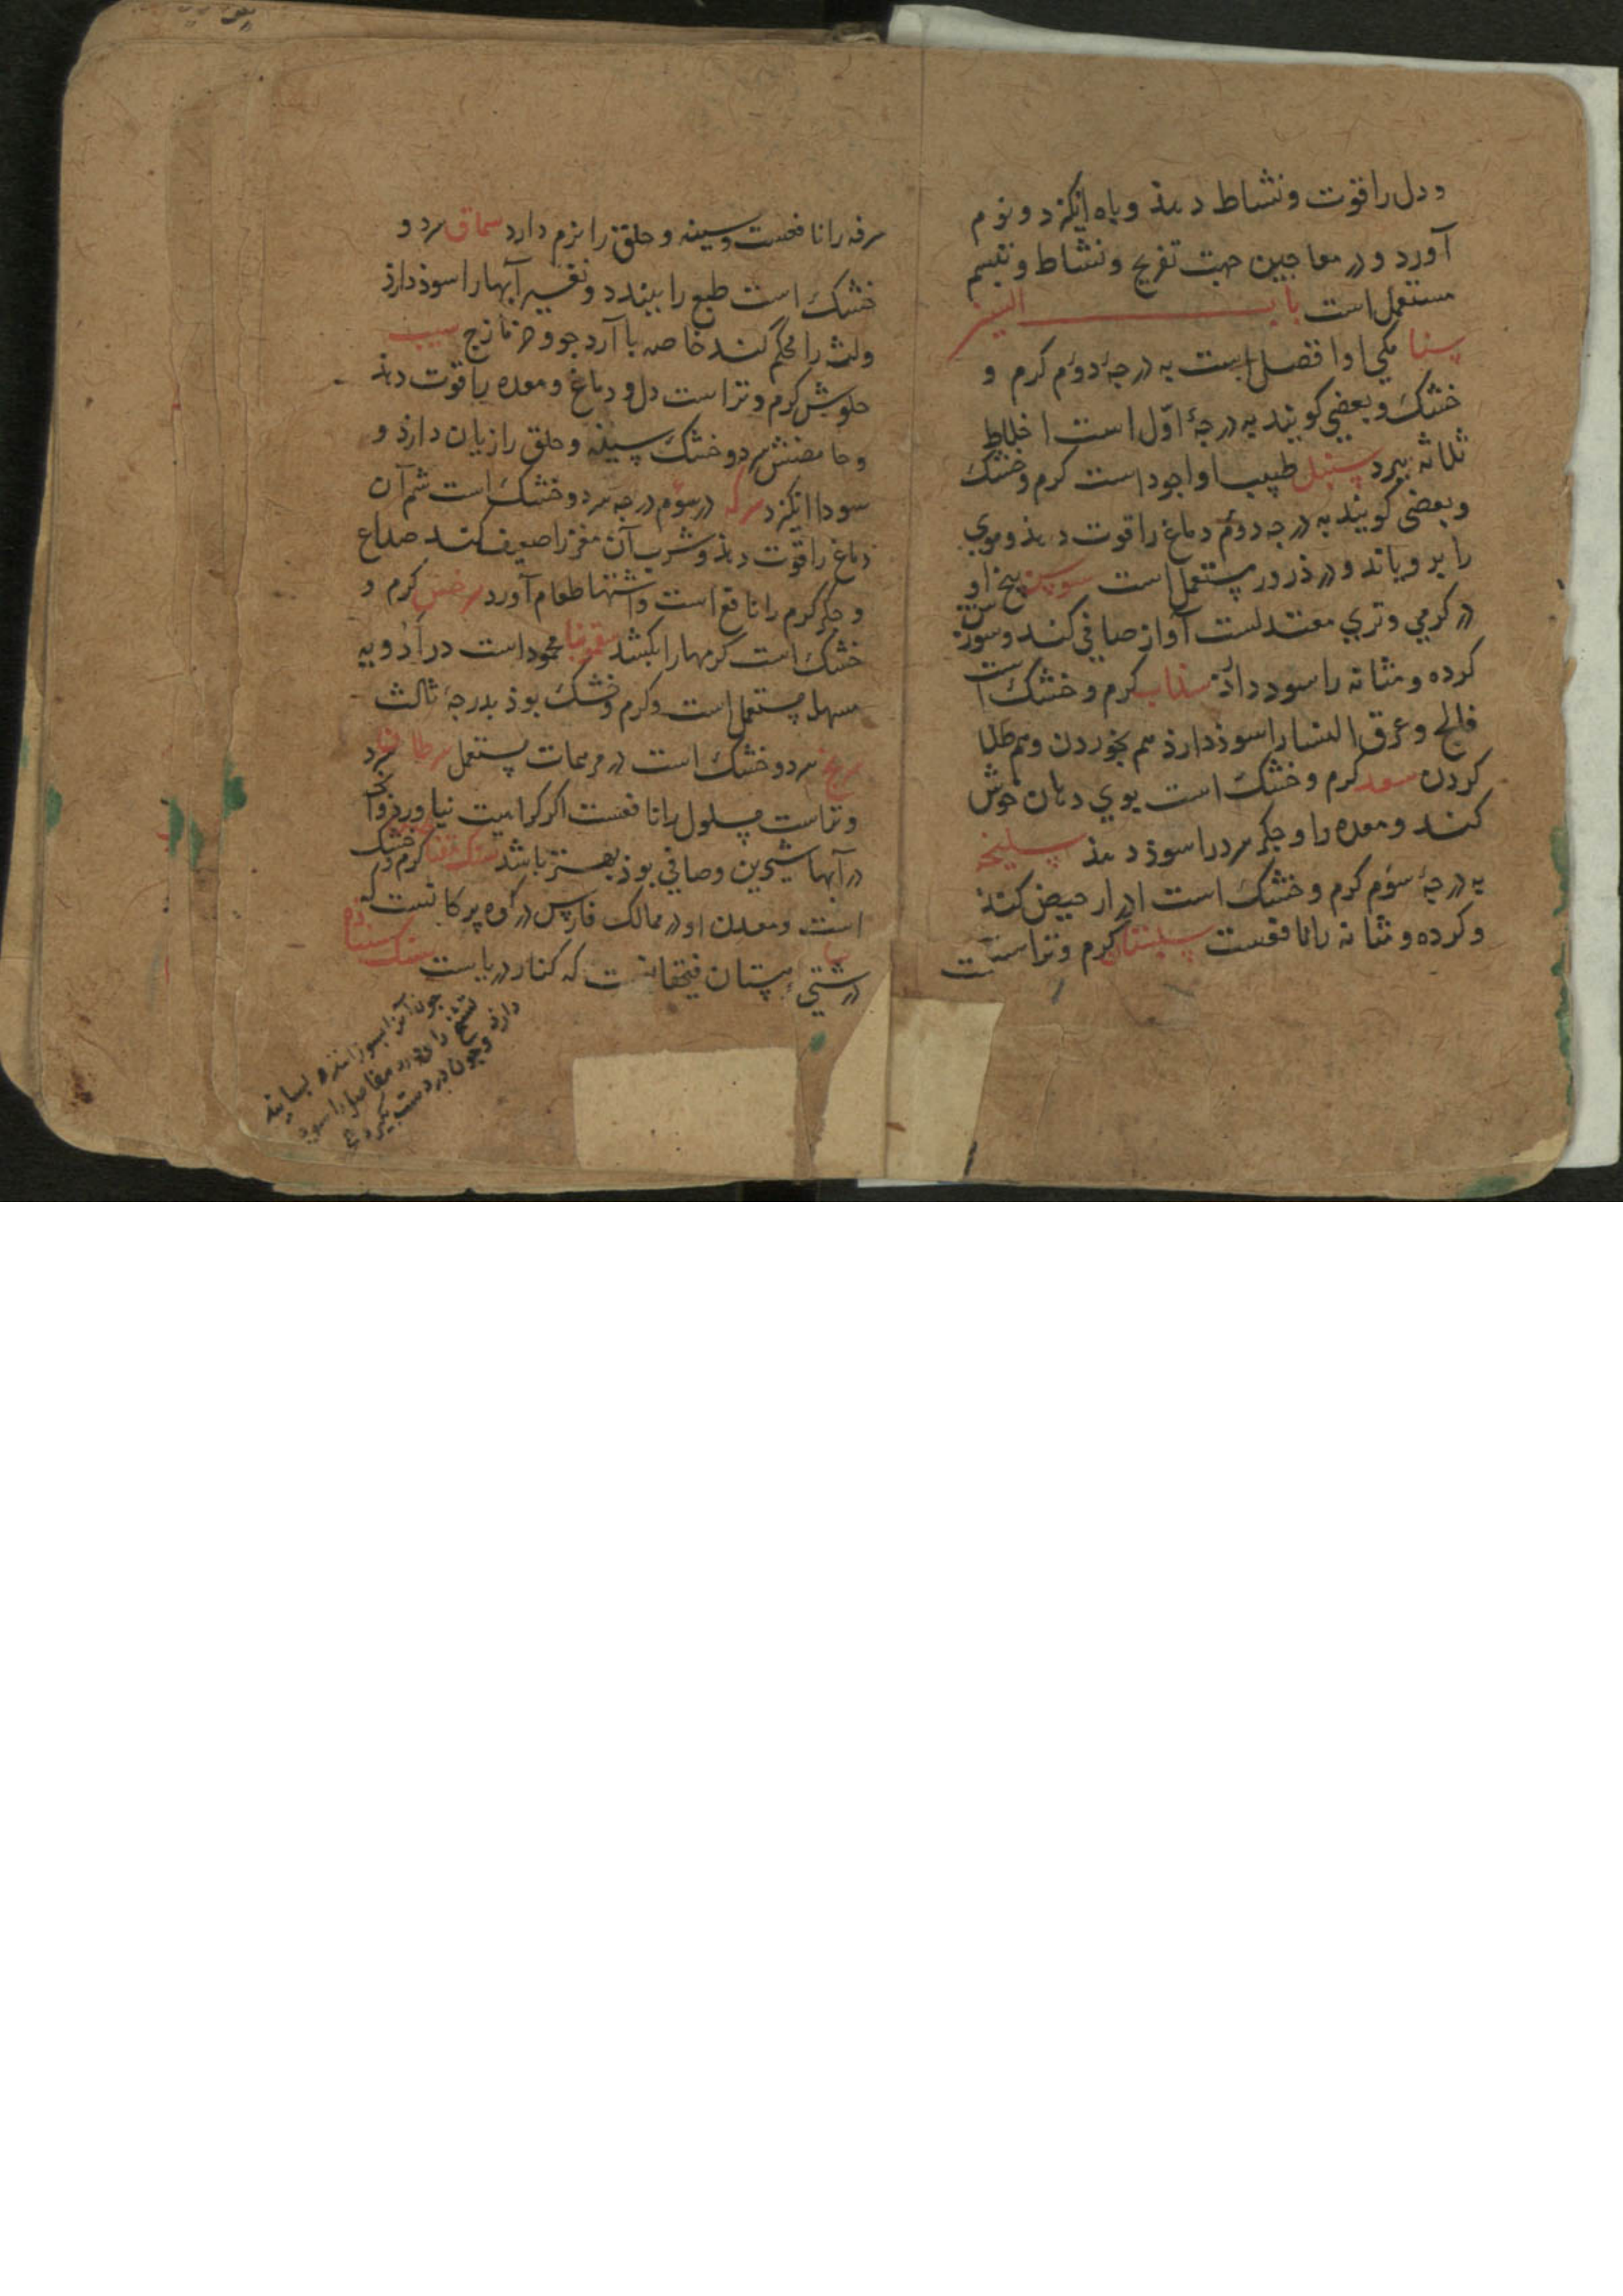 و دل را قوت و نشاط دهذ و باه انکیزد و نوم
آورد و در معاجین جهت تفریح و نشاط و تبسم
مستعمل است باب السین
سنا مکی او افضل است به درجهٔ دوم کرم و
خشک و بعضی کویند به درجهٔ اوّل است اخلاط
ثلاثه ببرد سنبل طیب او اجود است کرم و خشک
و بعضی کویند به درجه دوم دماغ را قوت دهذ و موی
را برویاند و در ذرور مستعمل است سوسن بیخ او
در کرمی و تری معتدلست آواز صافی کند و سوزش
کرده و مثانه را سود دارذ سذاب کرم و خشک است
فالج و عرق النسا را سوذ دارذ هم بخوردن و هم طلا
کردن سعد کرم و خشک است بوی دهان خوش
کند و معده را و جکر سرد را سوذ دهذ سلیخه
به درجهٔ سوم کرم و خشک است ادرار حیض کند
و کرده و مثانه را نافعست سپستان کرم و تر است
سرفه را نافعست و سینه و حلق را نرم دارد سماق سرد و
خشک است طبع را ببندد و تغییر آبها را سوذ دارذ
ولثه را محکم کند خاصه با آرد جو و جز مازج سیب
حلوش کرم و تر است دل و دماغ و معده را قوت دهذ
و حامضش سرد و خشک سینه و حلق را زیان دارذ و
سودا انکیزد سرکه در سوم درجه سرد و خشک است شم آن
دماغ را قوت دهذ و شرب آن مغز را ضعیف کند صداع
و جکر کرم را نافع است و اشتها طعام آورد سرخس کرم و
خشک است کرمها را بکشد سقمونیا محموده است در ادویه
مسهل مستعمل است و کرم و خشک بوذ بدرجهٔ ثالث
سرنج سرد و خشک است در مرهمات مستعمل سرطان سرد
و تر است مسلول را نافعست اکر کراهیت نیاورد و آنچه
در آبها شیرین و صافی بوذ بهتر باشد سنک کرم و خشک
است و معدن او در ممالک فارس در کوه
در که کنار دریا است سنک
چون آنرا بسوزانند و بسایند
را و درد مفاصل را سود
دارذ و چون در دست کیرد